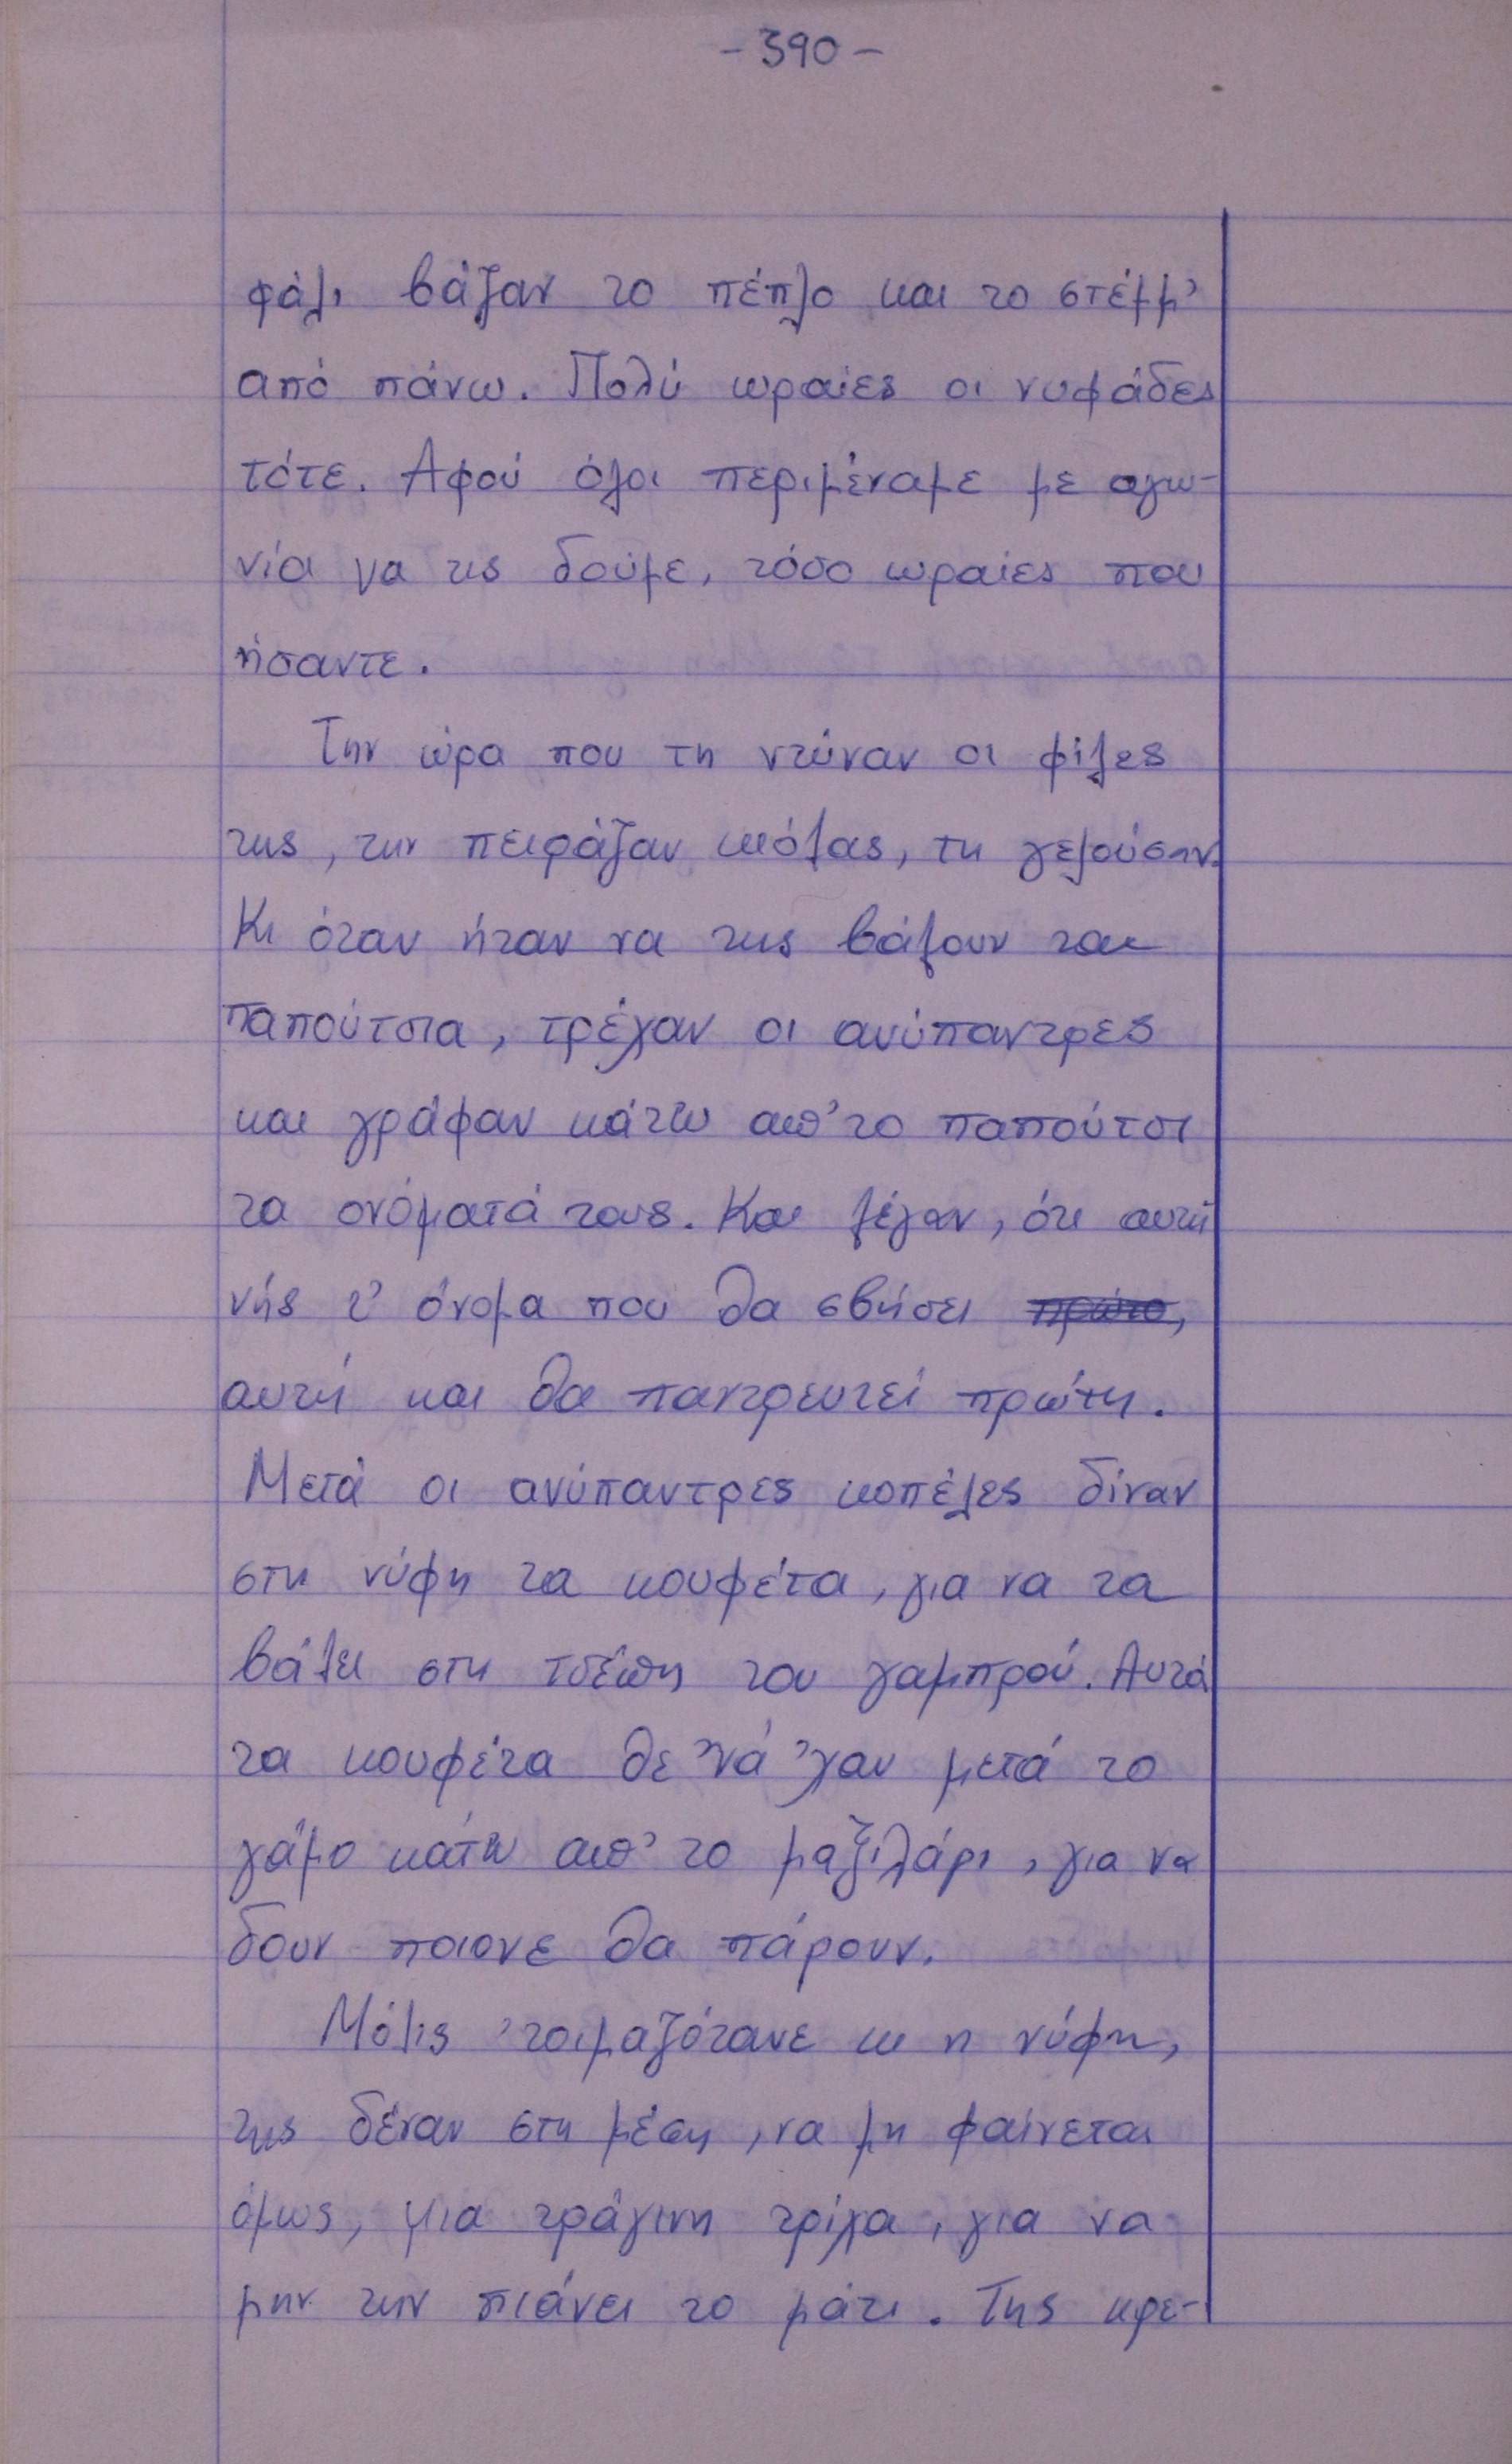 - 390 -
φάλι βάζαν το πέπλο και το στέμμ'
από πάνω. Πολύ ωραίες οι νυφάδες
τότε. Αφού όλοι περιμέναμε με αγω-
νία να τις δούμε, τόσο ωραίες που
ήσαντε.
Την ώρα που τη ντύναν οι φίλες
της, την πειράζαν κιόλας, τη γελούσαν.
Κι όταν ήταν να της βάλουν τα
παπούτσια, τρέχαν οι ανύπαντρες
και γράφαν κάτω απ' το παπούτσι
τα ονόματά τους. Και λέγαν, ότι αυτή
νής τ' όνομα που θα σβήσει πρώτο,
αυτή και θα παντρευτεί πρώτη.
Μετά οι ανύπαντρες κοπέλες δίναν
στη νύφη τα κουφέτα, για να τα
βάλει στη τσέπη του γαμπρού. Αυτά
τα κουφέτα θε' νά 'χαν μετά το
γάμο κάτω απ' το μαξιλάρι, για να
δουν ποιονε θα πάρουν.
Μόλις 'τοιμαζότανε κι η νύφη,
της δέναν στη μέση, να μη φαίνεται
όμως, μια τράγινη τρίχα, για να
μην την πιάνει το μάτι. Της κρε-